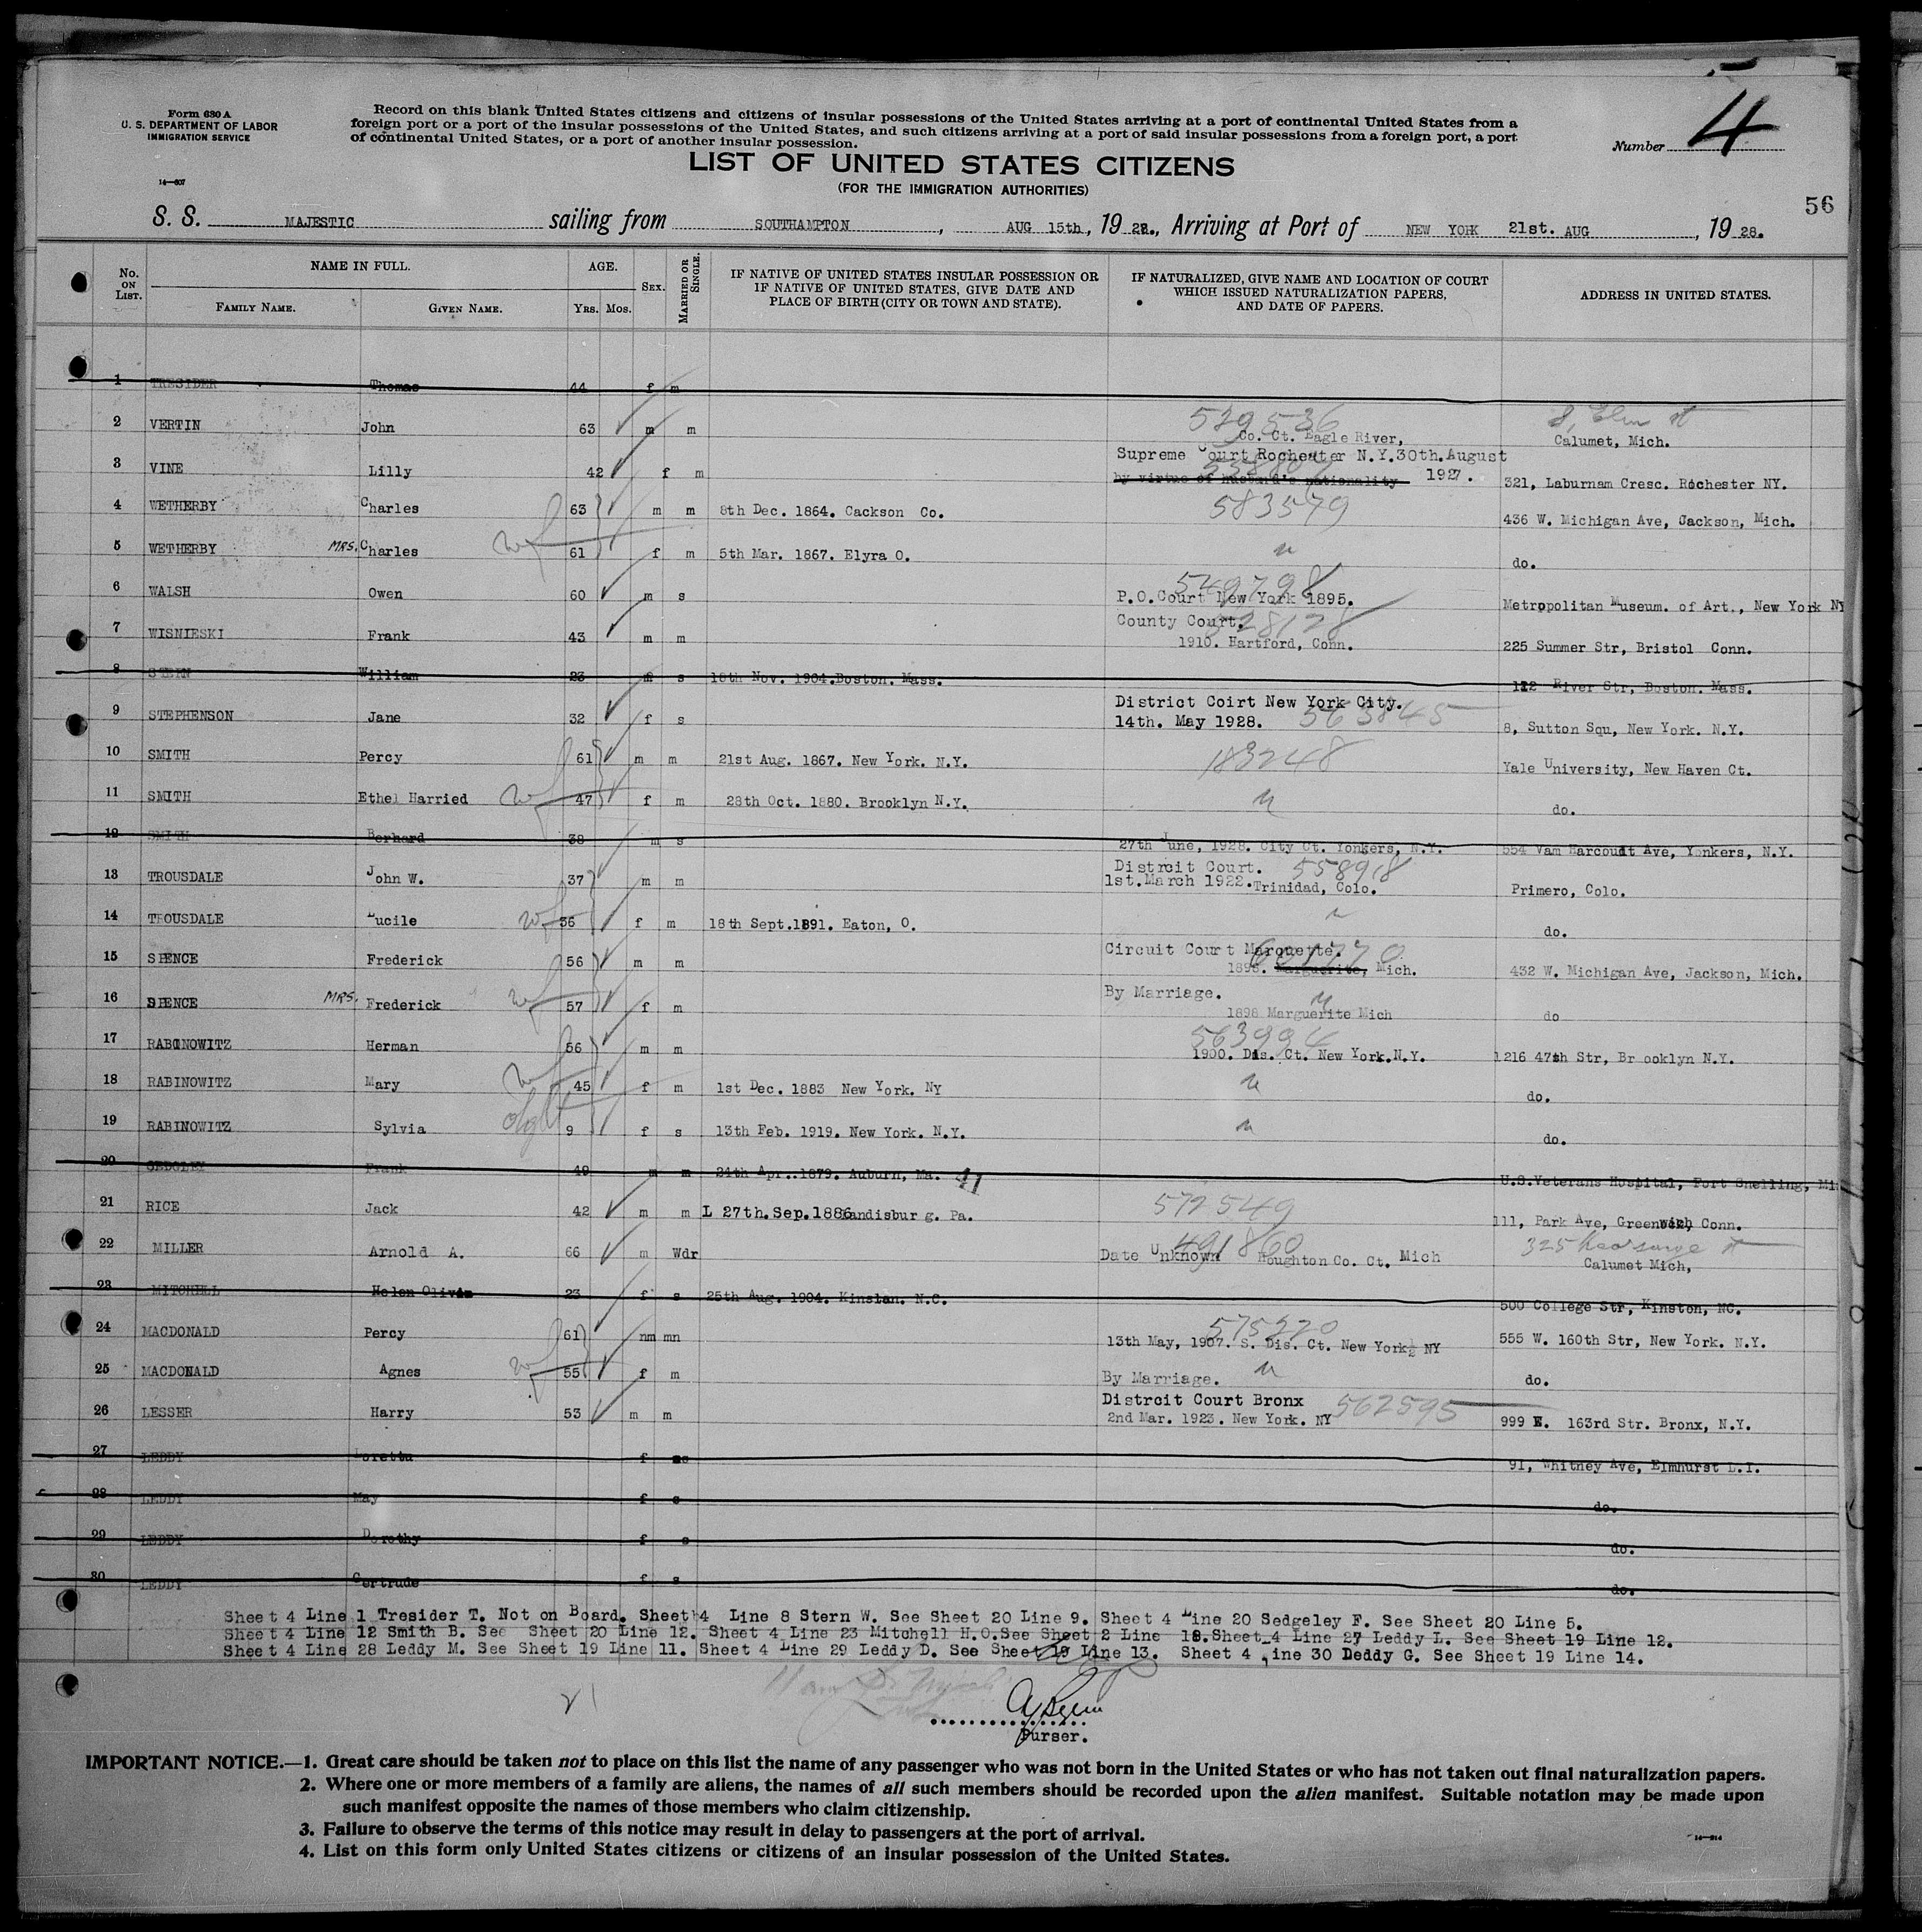 Form 630 A
U. S. DEPARTMENT OF LABOR
IMMIGRATION SERVICE
14—607
Record on this blank United States citizens and citizens of insular possessions of the United States arriving at a port of continental United States from a
foreign port or a port of the insular possessions of the United States, and such citizens arriving at a port of said insular possessions from a foreign port, a port
of continental United States, or a port of another insular possession.
Number 4
LIST OF UNITED STATES CITIZENS
(FOR THE IMMIGRATION AUTHORITIES)
56
S. S. MAJESTIC sailing from SOUTHAMPTON, AUG 15th, 1928., Arriving at Port of NEW YORK 21st. AUG, 1928.
No. ON LIST. NAME IN FULL. FAMILY NAME. GIVEN NAME. AGE. YRS. MOS. SEX. MARRIED OR SINGLE. IF NATIVE OF UNITED STATES INSULAR POSSESSION OR IF NATIVE OF UNITED STATES, GIVE DATE AND PLACE OF BIRTH (CITY OR TOWN AND STATE). IF NATURALIZED, GIVE NAME AND LOCATION OF COURT WHICH ISSUED NATURALIZATION PAPERS, AND DATE OF PAPERS. ADDRESS IN UNITED STATES.
1 TRESIDER Thomas 44 f m
2 VERTIN John 63 m m 529536 Co. Ct. Eagle River, 8, Elm st Calumet, Mich.
3 VINE Lilly 42 f m Supreme Court Rochester N.Y.30th.August 1927. by virtue of husband's nationality 321, Laburnam Cresc. Rochester NY.
4 WETHERBY Charles 63 m m 8th Dec. 1864. Cackson Co. 583579 436 W. Michigan Ave, Jackson, Mich.
5 WETHERBY MRS. Charles wf 61 f m 5th Mar. 1867. Elyra O. " do.
6 WALSH Owen 60 m s 549798 P.O.Court New York 1895. Metropolitan Museum. of Art., New York NY
7 WISNIESKI Frank 43 m m County Court. 528128 1910. Hartford, Conn. 225 Summer Str, Bristol Conn.
8 STERN William 23 m s 18th Nov. 1904.Boston. Mass. 112 River Str, Boston. Mass.
9 STEPHENSON Jane 32 f s District Coirt New York City. 14th. May 1928. 563845 8, Sutton Squ, New York. N.Y.
10 SMITH Percy 61 m m 21st Aug. 1867. New York. N.Y. 183248 Yale University, New Haven Ct.
11 SMITH Ethel Harried wf 47 f m 28th Oct. 1880. Brooklyn N.Y. " do.
12 SMITH Berhard 38 m s 27th June, 1928. City Ct. Yonkers, N.Y. 554 Vam Harcoudt Ave, Yonkers, N.Y.
13 TROUSDALE John W. 37 m m Distroit Court. 558918 1st.March 1922.Trinidad, Colo. Primero, Colo.
14 TROUSDALE Lucile wf 36 f m 18th Sept.1891. Eaton, O. " do.
15 SPENCE Frederick 56 m m Circuit Court Marquette. 1898. Marguerite, Mich. 432 W. Michigan Ave, Jackson, Mich.
16 SPENCE MRS. Frederick wf 57 f m By Marriage. " 1898 Marguerite Mich do
17 RABINOWITZ Herman 56 m m 563994 1900. Dis. Ct. New York.N.Y. 1216 47th Str, Br ooklyn N.Y.
18 RABINOWITZ Mary wf 45 f m 1st Dec. 1883 New York. NY " do.
19 RABINOWITZ Sylvia 9 f s 13th Feb. 1919. New York. N.Y. " do.
20 SEDGLEY Frank 49 m m 24th Apr..1879. Auburn, Ma. U.S.Veterans Hospital, Fort Snelling, Mi
21 RICE Jack 42 m m L 27th.Sep.1886 Landisbur g. Pa. 572549 111, Park Ave, Greenwich Conn.
22 MILLER Arnold A. 66 m Wdr 491860 Date Unknown Houghton Co. Ct. Mich 325 Kearsarge st Calumet Mich,
23 MITCHELL Helen Olivia 23 f s 25th Aug. 1904. Kinslan. N.C. 500 College Str, Kinston, NC.
24 MACDONALD Percy 61 nm mn 575220 13th May, 1907. S. Dis. Ct. New York NY 555 W. 160th Str, New York. N.Y.
25 MACDONALD Agnes wf 55 f m By Marriage. " do.
26 LESSER Harry 53 m m Distroit Court Bronx 2nd Mar. 1923. New York. NY 562595 999 E. 163rd Str. Bronx, N.Y.
27 LEDDY Loretta f s 91, Whitney Ave, Elmhurst L.I.
28 LEDDY May f s do.
29 LEDDY Dorothy f s do.
30 LEDDY Gertrude f s do.
Sheet 4 Line 1 Tresider T. Not on Board. Sheet 4 Line 8 Stern W. See Sheet 20 Line 9. Sheet 4 Line 20 Sedgeley F. See Sheet 20 Line 5.
Sheet 4 Line 12 Smith B. See Sheet 20 Line 12. Sheet 4 Line 23 Mitchell H.O.See Sheet 2 Line 18.Sheet 4 Line 27 Leddy L. See Sheet 19 Line 12.
Sheet 4 Line 28 Leddy M. See Sheet 19 Line 11. Sheet 4 Line 29 Leddy D. See Sheet 19 Line 13. Sheet 4 Line 30 Deddy G. See Sheet 19 Line 14.
21
Purser.
IMPORTANT NOTICE.—1. Great care should be taken not to place on this list the name of any passenger who was not born in the United States or who has not taken out final naturalization papers.
2. Where one or more members of a family are aliens, the names of all such members should be recorded upon the alien manifest. Suitable notation may be made upon
such manifest opposite the names of those members who claim citizenship.
3. Failure to observe the terms of this notice may result in delay to passengers at the port of arrival.
4. List on this form only United States citizens or citizens of an insular possession of the United States.
14—914